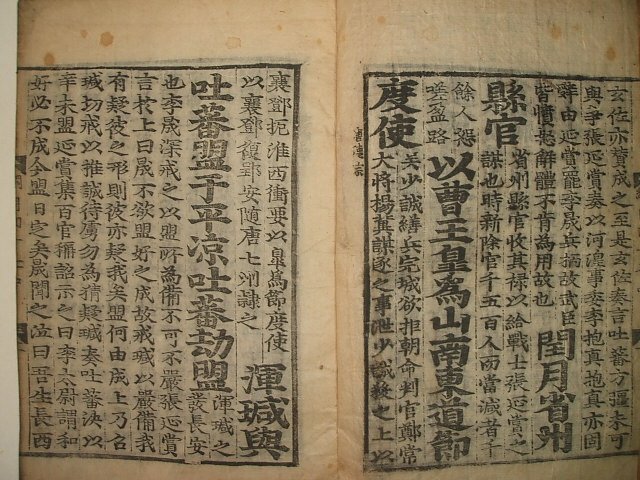 玄佐亦贊成之至是玄佐奏言吐蕃方彊未可
與爭張延賞奏以河湟事委李抱真抱真亦固
辭由延賞罷李晟兵柄故武臣
皆憤怒解體不肯為用故也
閏月省州
縣官
省州縣官收其祿以給戰士張延賞之
謀也時新除官千五百人而當減者千
餘人怨
嗟盈路
以曹王皐爲山南東道節
度使
少誠繕兵完城欲拒朝命判官鄭常
大將楊冀謀逐之事泄少誠殺之上以
襄鄧扼淮西衝要以皐為節度使
以襄鄧復郢安隨唐七州隷之
渾瑊與
吐蕃盟于平凉吐蕃劫盟
渾瑊之
發長安
也李晟深戒之以盟所為備不可不嚴張延賞
言於上曰晟不欲盟好之成故戒瑊以嚴備我
有疑彼之形則彼亦疑我矣盟何由成上乃召
瑊切戒以推誠待虜勿為猜疑瑊奏吐蕃決以
辛未盟延賞集百官稱詔示之曰李太尉謂和
好必不成今盟日定矣晟聞之泣曰吾生長西